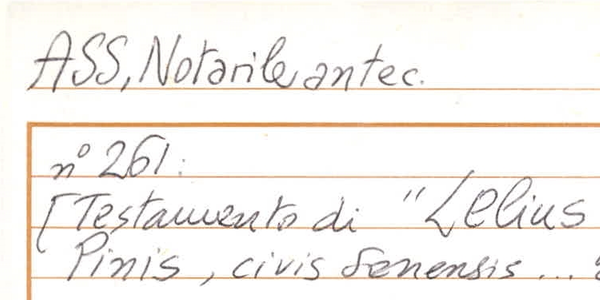 ASS, Notarile antec.
n° 261:
[Testamento di "Lelius
Pinis, civis Senensis..."